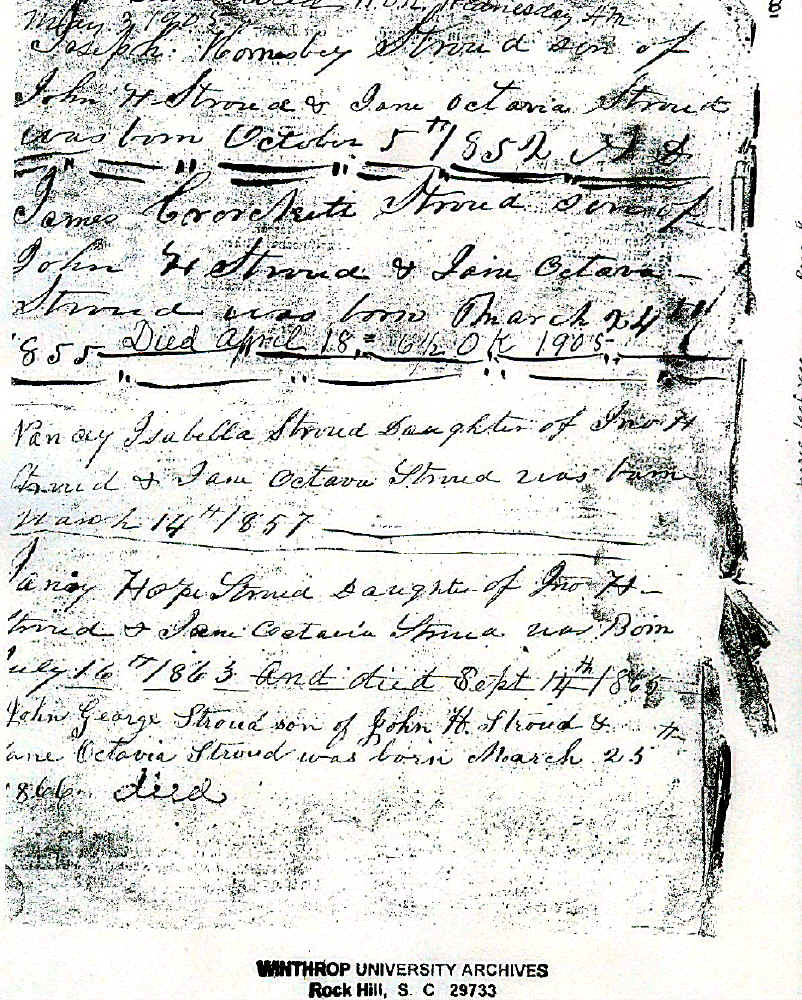 Wednesday
May 3 1905
Joseph Hornsbey Stroud son of
John H Stroud & Jane Octavia Stroud
was born October 5th 1852
James Crockett Stroud son of
John H Stroud & Jane Octava
Stroud was born March 24th
855 Died April 18 = 6½ O K 1905
Nancy Isabella Stroud Daughter of Jno H
Stroud & Jane Octava Stroud was born
March 14th 1857
Hope Stroud Daughter of Jno H
Stroud & Jane Octavia Stroud was Born
July 16th 1863 And died Sept 14th 1865
John George Stroud son of John H. Stroud &
ane Octavia Stroud was born March 25th
866 died
WINTHROP UNIVERSITY ARCHIVES
Rock Hill, S. C 29733